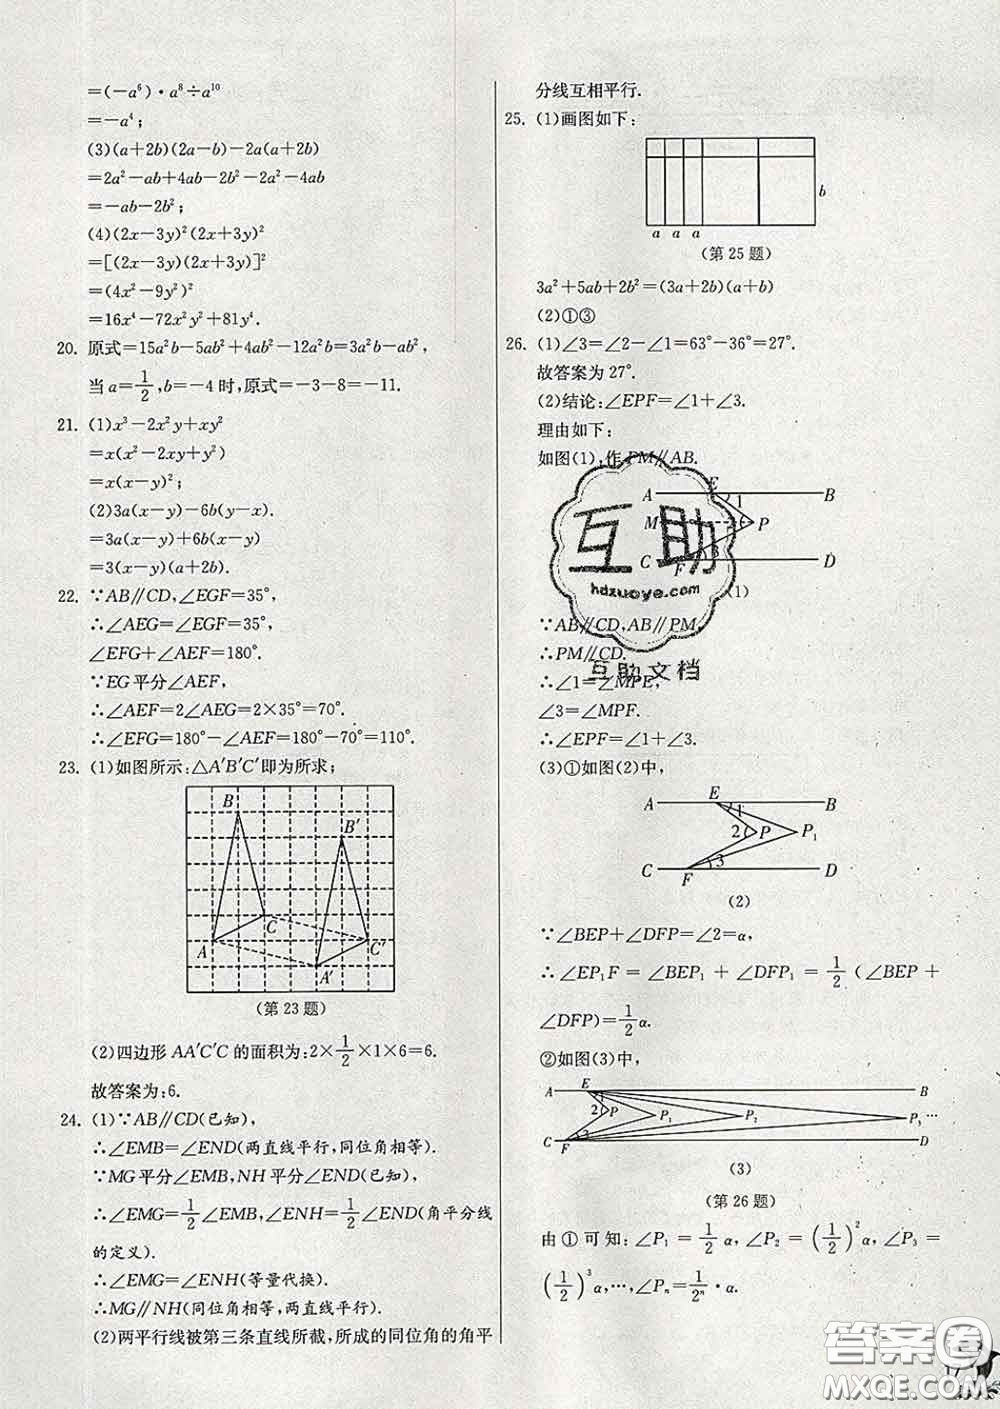 =(-a⁶)·a⁸÷a¹⁰
=-a⁴;
(3)(a+2b)(2a-b)-2a(a+2b)
=2a²-ab+4ab-2b²-2a²-4ab
=-ab-2b²;
(4)(2x-3y)²(2x+3y)²
=[(2x-3y)(2x+3y)]²
=(4x²-9y²)²
=16x⁴-72x²y²+81y⁴.
20. 原式=15a²b-5ab²+4ab²-12a²b=3a²b-ab²,
当a=1/2,b=-4时,原式=-3-8=-11.
21. (1)x³-2x²y+xy²
=x(x²-2xy+y²)
=x(x-y)²;
(2)3a(x-y)-6b(y-x).
=3a(x-y)+6b(x-y)
=3(x-y)(a+2b).
22. ∵AB∥CD,∠EGF=35°,
∴∠AEG=∠EGF=35°,
∠EFG+∠AEF=180°.
∵EG平分∠AEF,
∴∠AEF=2∠AEG=2×35°=70°.
∴∠EFG=180°-∠AEF=180°-70°=110°.
23. (1)如图所示:△A′B′C′即为所求;
B
B′
C
A
C′
A′
(第23题)
(2)四边形AA′C′C的面积为:2×1/2×1×6=6.
故答案为:6.
24. (1)∵AB∥CD(已知),
∴∠EMB=∠END(两直线平行,同位角相等).
∵MG平分∠EMB,NH平分∠END(已知),
∴∠EMG=1/2∠EMB,∠ENH=1/2∠END(角平分线
的定义).
∴∠EMG=∠ENH(等量代换).
∴MG∥NH(同位角相等,两直线平行).
(2)两平行线被第三条直线所截,所成的同位角的角平
分线互相平行.
25. (1)画图如下:
b
a a a
(第25题)
3a²+5ab+2b²=(3a+2b)(a+b)
(2)①③
26. (1)∠3=∠2-∠1=63°-36°=27°.
故答案为27°.
(2)结论:∠EPF=∠1+∠3.
理由如下:
如图(1),作PM∥AB.
A E B
1
M P
C F 3 D
(1)
∵AB∥CD,AB∥PM,
∴PM∥CD.
∴∠1=∠MPE,
∠3=∠MPF.
∴∠EPF=∠1+∠3.
(3)①如图(2)中,
A E B
1
2 P P₁
3
C F D
(2)
∵∠BEP+∠DFP=∠2=α,
∴∠EP₁F=∠BEP₁+∠DFP₁=1/2(∠BEP+
∠DFP)=1/2α.
②如图(3)中,
A E B
2 P P₁ P₂ P₃ …
C F 3 D
(3)
(第26题)
由①可知:∠P₁=1/2α,∠P₂=(1/2)²α,∠P₃=
(1/2)³α,…,∠Pₙ=1/2ⁿ·α.
互助
hdzuoye.com
互助文档
答案圈
MXQE.COM